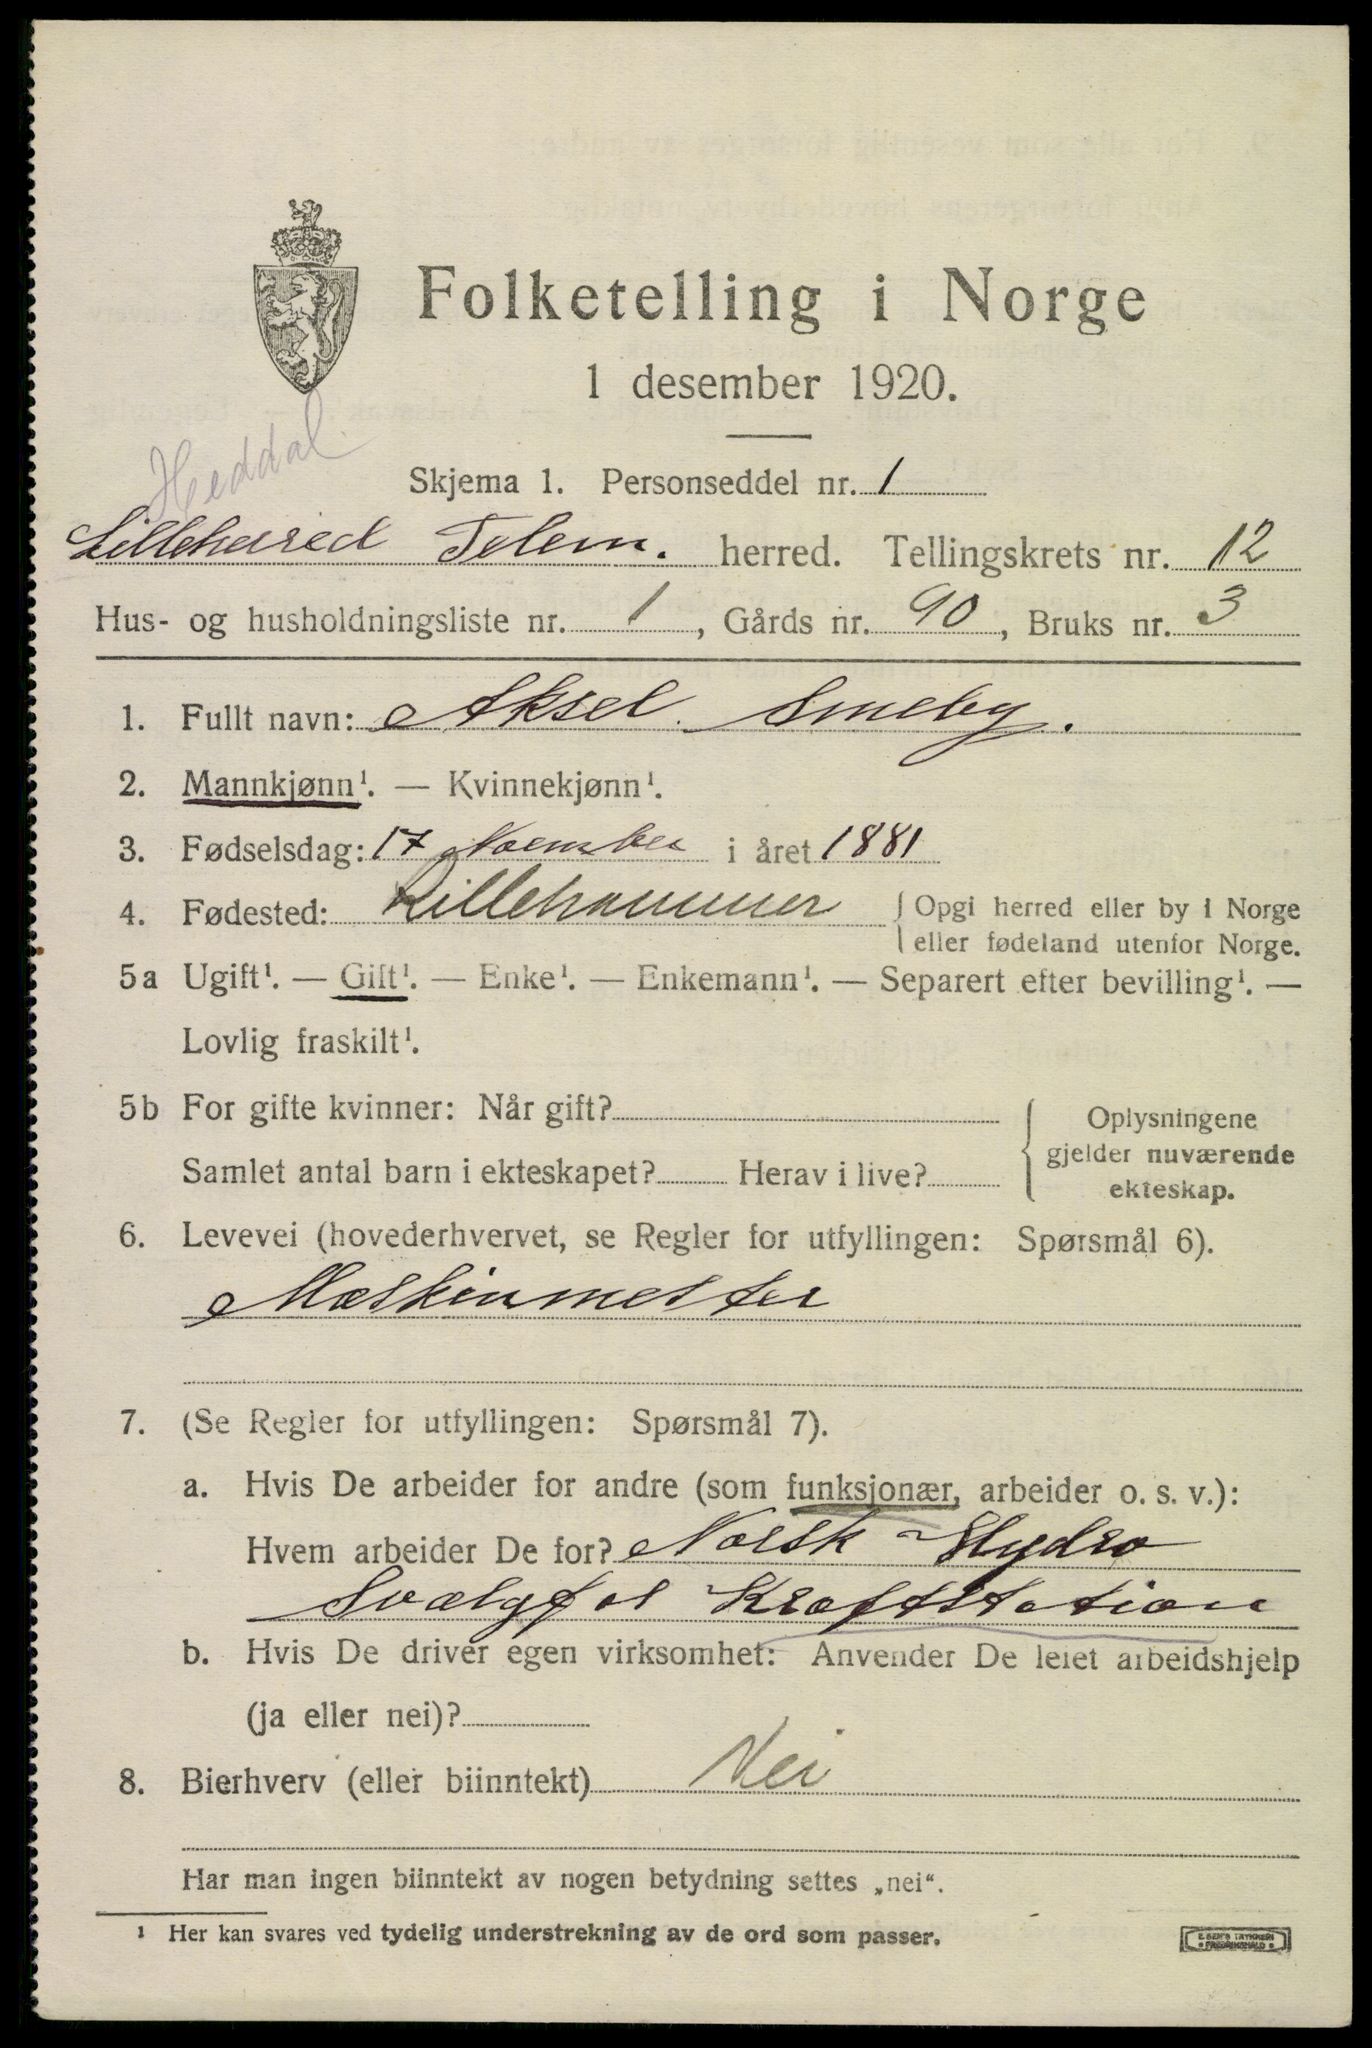 Folketelling i Norge
1 desember 1920.
Heddal.
Skjema 1. Personseddel nr. 1
Lilleherred Telem. herred. Tellingskrets nr. 12
Hus- og husholdningsliste nr. 1, Gårds nr. 90, Bruks nr. 3
1. Fullt navn: Aksel Smeby.
2. Mannkjønn¹. — Kvinnekjønn¹.
3. Fødselsdag: 17 November i året 1881
4. Fødested: Lillehammer { Opgi herred eller by i Norge
eller fødeland utenfor Norge.
5a Ugift¹. — Gift¹. — Enke¹. — Enkemann¹. — Separert efter bevilling¹. —
Lovlig fraskilt¹.
5b For gifte kvinner: Når gift?
Samlet antal barn i ekteskapet? Herav i live?
{ Oplysningene
gjelder nuværende
ekteskap.
6. Levevei (hovederhvervet, se Regler for utfyllingen: Spørsmål 6).
Maskinmester
7. (Se Regler for utfyllingen: Spørsmål 7).
a. Hvis De arbeider for andre (som funksjonær, arbeider o. s. v.):
Hvem arbeider De for? Norsk Hydro
Svælgfos Kraftstation
b. Hvis De driver egen virksomhet: Anvender De leiet arbeidshjelp
(ja eller nei)?
8. Bierhverv (eller biinntekt) Nei
Har man ingen biinntekt av nogen betydning settes „nei“.
¹ Her kan svares ved tydelig understrekning av de ord som passer.